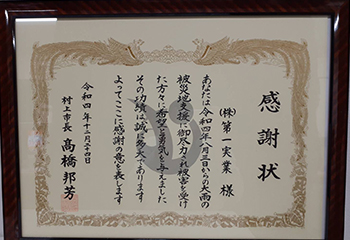 感謝状
(株)第一実業 様
あなたは令和四年八月三日からの大雨の
被災地支援に御尽力され被害を受け
た方々に希望と勇気を与えました
その功績は誠に多大であります
よってここに感謝の意を表します
令和四年十二月二十日
村上市長 高橋邦芳